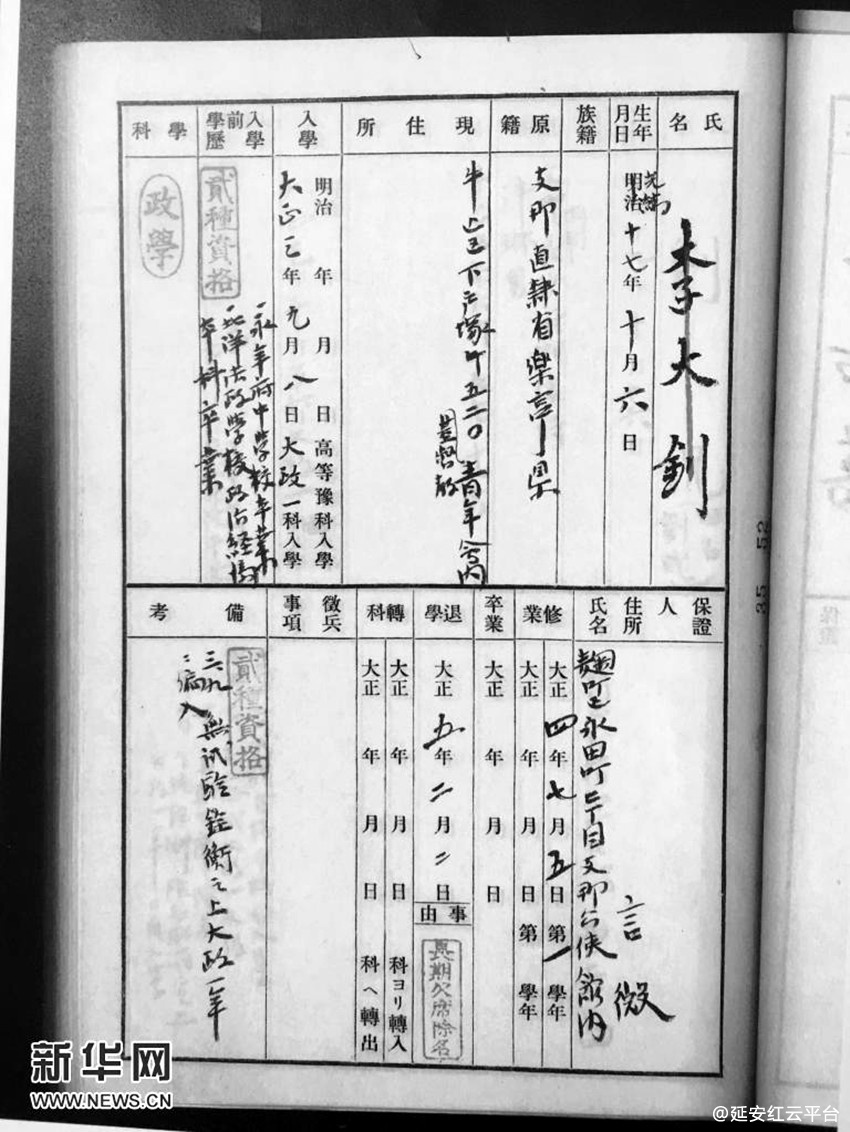 氏名
李大釗
生年月日
明治十七年十月六日
族籍
原籍
支那直隷省楽亭県
現住所
牛込区下戸塚町五二〇 青年会内
基督教
入學
明治 年 月 日高等豫科入學
大正三年九月八日大政一科入學
入學前學歷
貳種資格
一、永年府中学校卒業
一、北洋法政学校政治経済
本科卒業
學科
政學
保證人住所氏名
麹町区永田町二丁目支那公使館内
言微
修業
大正四年七月五日第一學年
大正 年 月 日第 學年
卒業
大正 年 月 日
退學
大正五年二月二日
事由
長期欠席除名
轉科
大正 年 月 日 科ヨリ轉入
大正 年 月 日 科ヘ轉出
徴兵事項
備考
貳種資格
三、九、無試験銓衡之上大政一年
ニ編入
35 52
保證
新华网
WWW.NEWS.CN
@延安红云平台